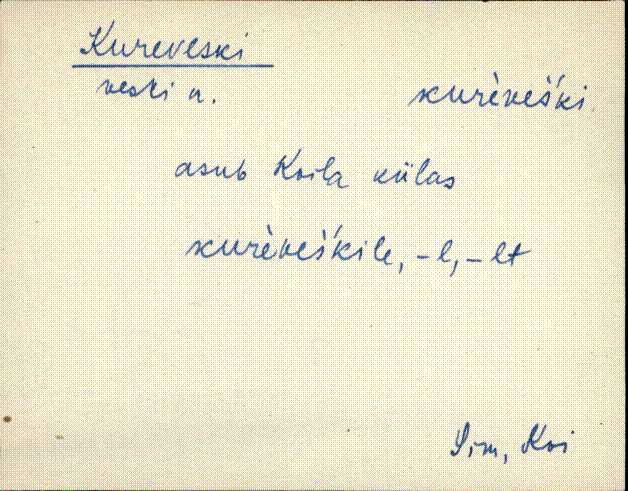 Kureveski
veski n. kurèveś́ki
asub Koila külas
kurèveś́kile, -l, -lt
Sim, Koi